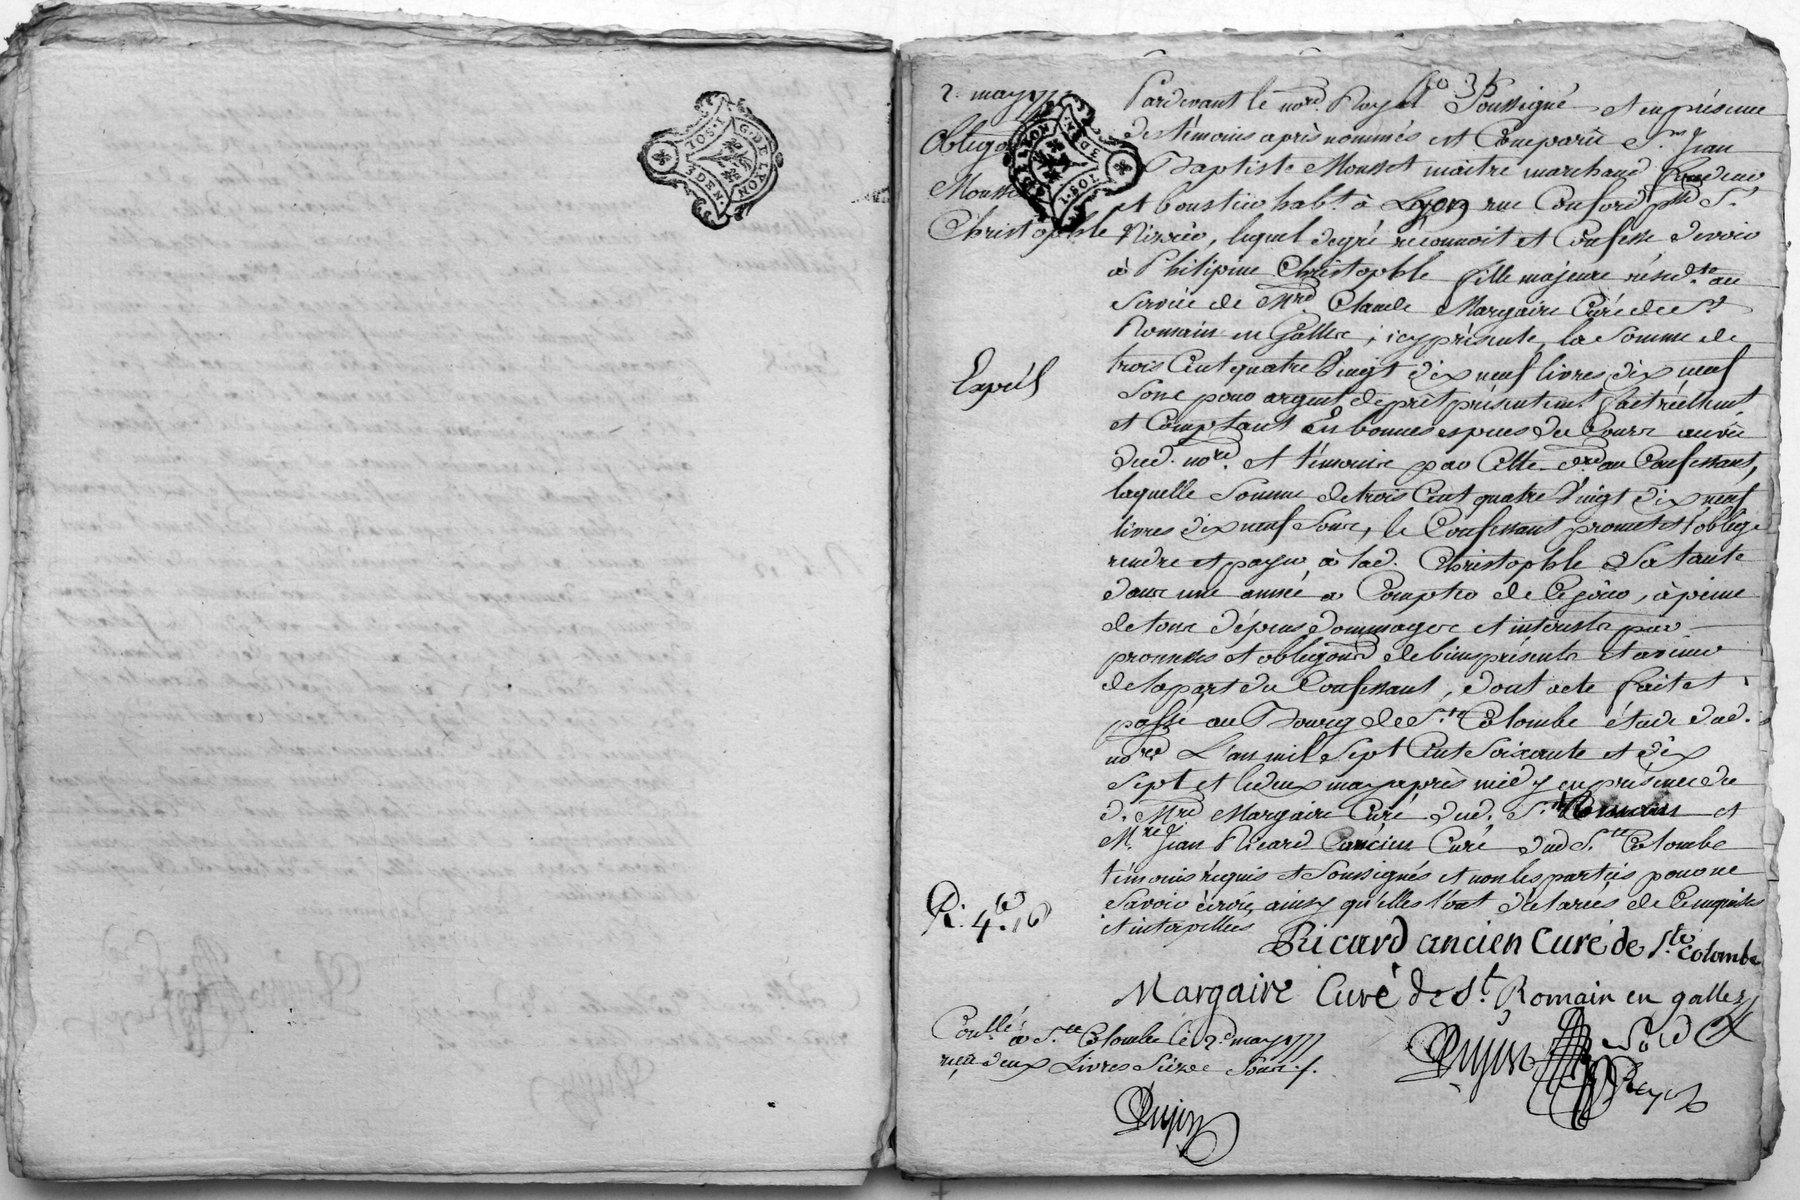 G. DE LYON
1 SOL
3 DEN.
2 may 1777
G. DE LYON
1 SOL
3 DEN.
Obligon
Mousset
Christophle
Expéé
R. 4. 16
Pardevant le nore. Royal Soussigné et en présence
des témoins après nommés est Comparu Sr. Jean
Baptiste Mousset maitre marchand
et boursier habt. à Lyon rue Conford psse St.
Nizier, lequel de gré reconnoit et Confesse devoir
à Philipine Christophle fille majeure résidte. au
service de Mre Claude Margaire Curé de St
Romain en Galles, icy présente, la Somme de
trois Cent quatre Vingt dix neuf livres dix neuf
Sous pour argent de prêt présentemt. fait réellemt.
et Comptant En bonnes espèces du Cours au vû
dud. nore. et témoins par Cette dre au Confessant,
laquelle Somme de trois Cent quatre Vingt dix neuf
livres dix neuf Sous, le Confessant promet et s'oblige
rendre et payer à lad. Christophle Sa tante
dans une année à Compter de Ce jour, à peine
de tous dépens dommages et interests par
promesses et obligons de biens présents et avenir
de la part du Confessant, dont acte fait et
passé au Bourg de Ste. Colombe étude dud.
nore L'an mil Sept Cent Soixante et dix
Sept et le deux may après midy en présence du
d. Mre Margaire Curé dud. St. Romain et
Mre. Jean Ricard ancien Curé dud Ste. Colombe
témoins requis et Soussignés et non les parties pour ne
Savoir écrire, ainsy qu'elles l'ont déclarées de Ce enquises
et interpellées
Ricard ancien Curé de Ste. Colombe
Margaire Curé de St. Romain en galles
Conllé à Ste Colombe le 2e may 1777
reçu deux Livres Seize Sous
Dujon
Dujon